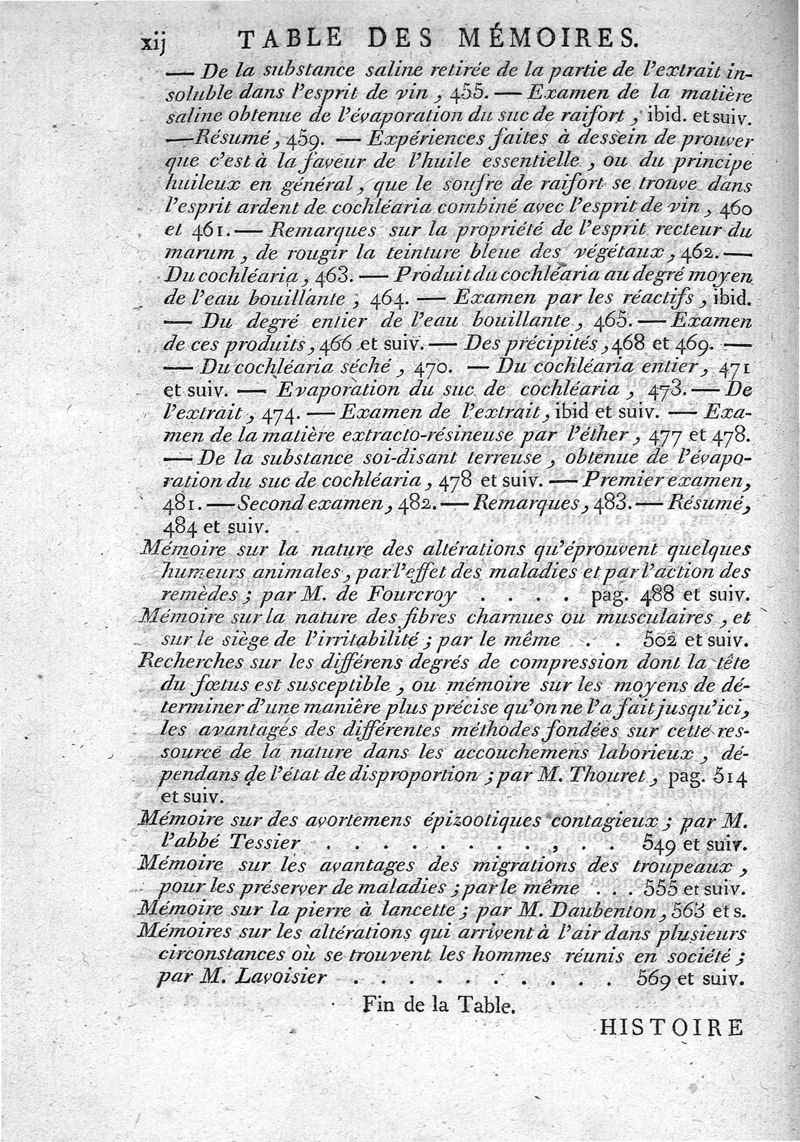 xij TABLE DES MÉMOIRES.
— De la substance saline retirée de la partie de l'extrait in-
soluble dans l'esprit de vin, 455. — Examen de la matière
saline obtenue de l'évaporation du suc de raifort, ibid. et suiv.
— Résumé, 459. — Expériences faites à dessein de prouver
que c'est à la faveur de l'huile essentielle, ou du principe
huileux en général, que le soufre de raifort se trouve dans
l'esprit ardent de cochléaria combiné avec l'esprit de vin, 460
et 461. — Remarques sur la propriété de l'esprit recteur du
marum, de rougir la teinture bleue des végétaux, 462. —
Du cochléaria, 463. — Produit du cochléaria au degré moyen
de l'eau bouillante, 464. — Examen par les réactifs, ibid.
— Du degré entier de l'eau bouillante, 465. — Examen
de ces produits, 466 et suiv. — Des précipités, 468 et 469. —
— Du cochléaria séché, 470. — Du cochléaria entier, 471
et suiv. — Evaporation du suc de cochléaria, 473. — De
l'extrait, 474. — Examen de l'extrait, ibid et suiv. — Exa-
men de la matière extracto-résineuse par l'éther, 477 et 478.
— De la substance soi-disant terreuse, obtenue de l'évapo-
ration du suc de cochléaria, 478 et suiv. — Premier examen,
481. — Second examen, 482. — Remarques, 483. — Résumé,
484 et suiv.
Mémoire sur la nature des altérations qu'éprouvent quelques
humeurs animales, par l'effet des maladies et par l'action des
remèdes; par M. de Fourcroy . . . . pag. 488 et suiv.
Mémoire sur la nature des fibres charnues ou musculaires, et
sur le siège de l'irritabilité; par le même . . 502 et suiv.
Recherches sur les différens degrés de compression dont la tête
du fœtus est susceptible, ou mémoire sur les moyens de dé-
terminer d'une manière plus précise qu'on ne l'a fait jusqu'ici,
les avantages des différentes méthodes fondées sur cette res-
source de la nature dans les accouchemens laborieux, dé-
pendans de l'état de disproportion; par M. Thouret, pag. 514
et suiv.
Mémoire sur des avortemens épizootiques contagieux; par M.
l'abbé Tessier . . . . . . . . , . . 549 et suiv.
Mémoire sur les avantages des migrations des troupeaux,
pour les préserver de maladies; par le même . . . 555 et suiv.
Mémoire sur la pierre à lancette; par M. Daubenton, 563 et s.
Mémoires sur les altérations qui arrivent à l'air dans plusieurs
circonstances où se trouvent les hommes réunis en société;
par M. Lavoisier . . . . . . . . . . 569 et suiv.
Fin de la Table.
HISTOIRE